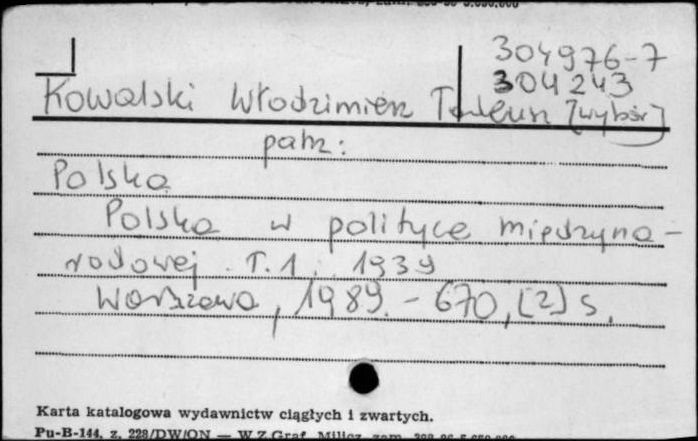 304976-7
304243
Kowalski Włodzimierz Tadeusz [wybór]
patrz:
Polska
Polska w polityce międzyna-
rodowej. T.1. 1939
Warszawa, 1989. - 670, [2] s.
Karta katalogowa wydawnictw ciągłych i zwartych.
Pu-B-144, z. 228/DW/ON — W.Z.Graf. Milicz, zam.